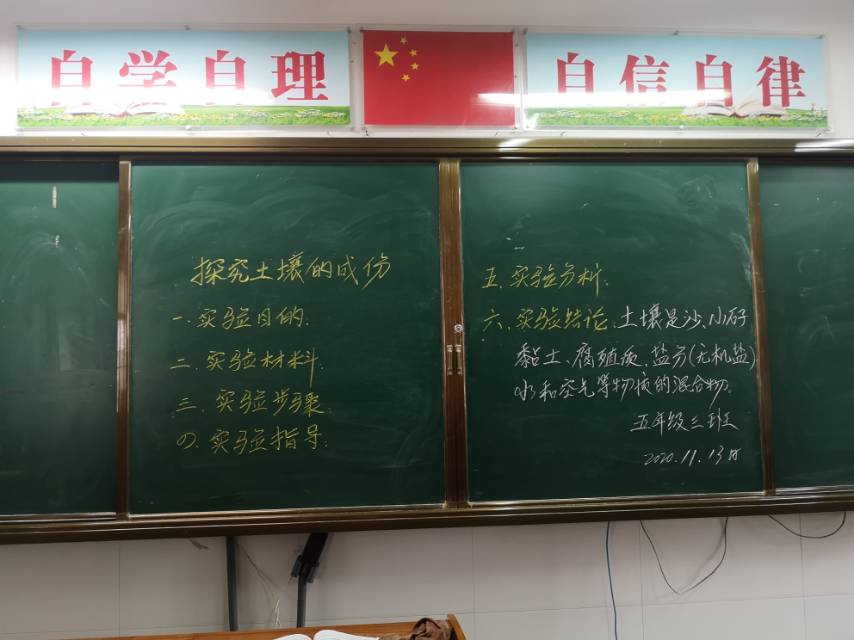 自学自理
自信自律
探究土壤的成份
一.实验目的.
二.实验材料.
三.实验步骤.
四.实验指导.
五.实验分析.
六、实验结论、土壤是沙、小石子
黏土、腐殖质、盐分(无机盐)、
水和空气等物质的混合物。
五年级三班
2020.11.13日